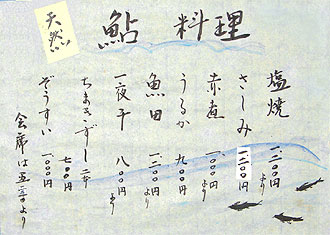 天然
鮎料理
塩焼 一二〇〇円より
さしみ 一二〇〇円
赤煮 一、〇〇〇円より
うるか 九〇〇円
魚田 一二〇〇円より
一夜干 八〇〇円より
ちまきずし二本 七〇〇円
ぞうすい 一、〇〇〇円
会席は
より